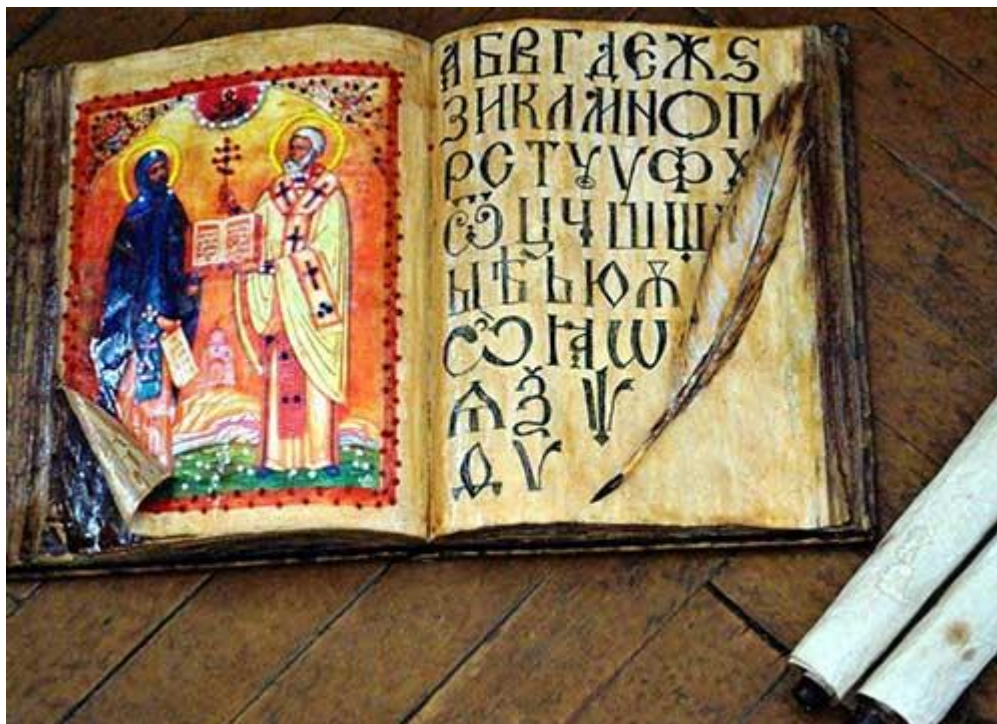 АБВГДЕЖЅ
ЗИКЛМНОП
РСТꙊѴФХ
Ѽ ЦЧШЩ
ЫѢЬЮѦ
Ѽ ꙖѠ
ѦѮѰ
ѲѴ